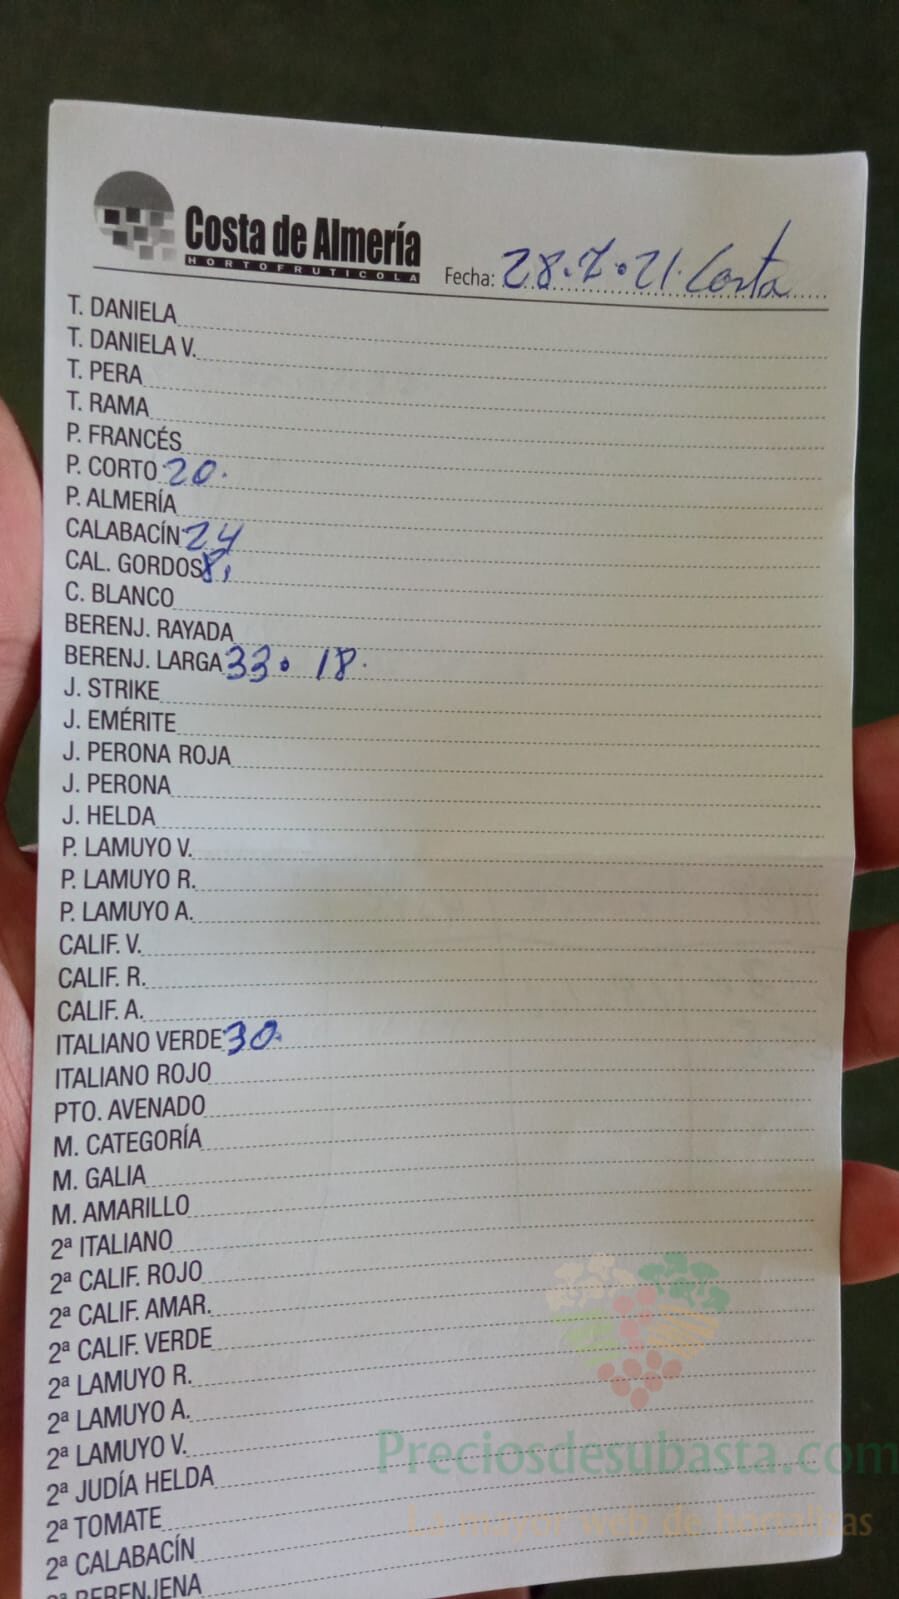 Costa de Almería
HORTOFRUTICOLA
Fecha: 28.7.21. Costa
T. DANIELA
T. DANIELA V.
T. PERA
T. RAMA
P. FRANCÉS
P. CORTO 20.
P. ALMERÍA
CALABACÍN 24
CAL. GORDOS 8,
C. BLANCO
BERENJ. RAYADA
BERENJ. LARGA 33. 18.
J. STRIKE
J. EMÉRITE
J. PERONA ROJA
J. PERONA
J. HELDA
P. LAMUYO V.
P. LAMUYO R.
P. LAMUYO A.
CALIF. V.
CALIF. R.
CALIF. A.
ITALIANO VERDE 30.
ITALIANO ROJO
PTO. AVENADO
M. CATEGORÍA
M. GALIA
M. AMARILLO
2ª ITALIANO
2ª CALIF. ROJO
2ª CALIF. AMAR.
2ª CALIF. VERDE
2ª LAMUYO R.
2ª LAMUYO A.
2ª LAMUYO V.
2ª JUDÍA HELDA
2ª TOMATE
2ª CALABACÍN
2ª BERENJENA
Preciosdesubasta.com
La mayor web de hortalizas